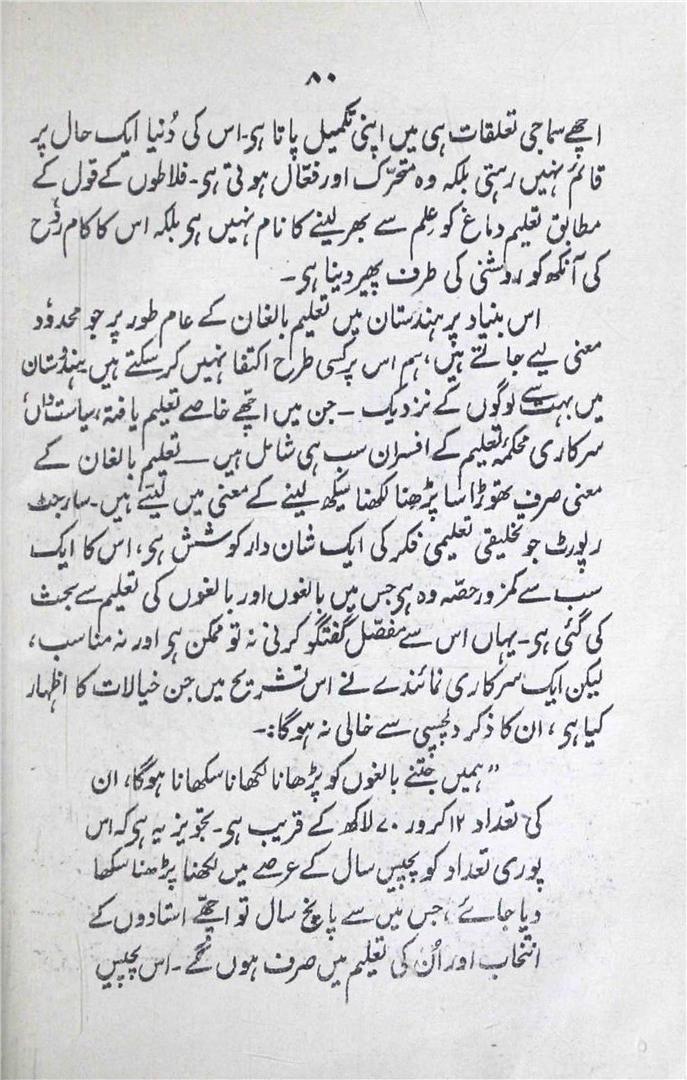 ۸۰
اچھّے سماجی تعلقات ہی میں اپنی تکمیل پاتا ہی۔ اس کی دُنیا ایک حال پر
قائم نہیں رہتی بلکہ وہ متحرّک اور فعّال ہوتی ہی۔ فلاطوں کے قول کے
مطابق تعلیم دماغ کو عِلم سے بھر لینے کا نام نہیں ہی بلکہ اس کا کام رؤح
کی آنکھ کو روشنی کی طرف پھیر دینا ہی۔
اس بنیاد پر ہندستان میں تعلیم بالغان کے عام طور پر جو محدؤد
معنی لیے جاتے ہیں، ہم اس پر کسی طرح اکتفا نہیں کر سکتے ہیں ہندُستان
میں بہت سے لوگوں کے نزدیک ۔ جن میں اچھّے خاصے تعلیم یافتہ، سیاست داں،
سرکاری محکمۂ تعلیم کے افسران سب ہی شامل ہیں — تعلیم بالغان کے
معنی صرف تھوڑا سا پڑھنا لکھنا سیکھ لینے کے معنی میں لیتے ہیں۔ سارجنٹ
رپورٹ جو تخلیقی تعلیمی فکر کی ایک شان دار کوشش ہی، اس کا ایک
سب سے کمزور حصّہ وہ ہی جس میں بالغوں اور بالغوں کی تعلیم سے بحث
کی گئی ہی۔ یہاں اس سے مفصّل گفتگو کرنی نہ تو ممکن ہی اور نہ مناسب،
لیکن ایک سرکاری نمائندے نے اس تشریح میں جن خیالات کا اظہار
کیا ہی، ان کا ذکر دلچسپی سے خالی نہ ہوگا:۔
”ہمیں جتنے بالغوں کو پڑھانا لکھانا سکھانا ہوگا، ان
کی تعداد ۱۲ کرور ۷۰ لاکھ کے قریب ہی۔ تجویز یہ ہی کہ اس
پوری تعداد کو پچیس سال کے عرصے میں لکھنا پڑھنا سکھا
دیا جائے، جس میں سے پانچ سال تو اچھّے استادوں کے
انتخاب اور اُن کی تعلیم میں صرف ہوں گے۔ اس پچیس